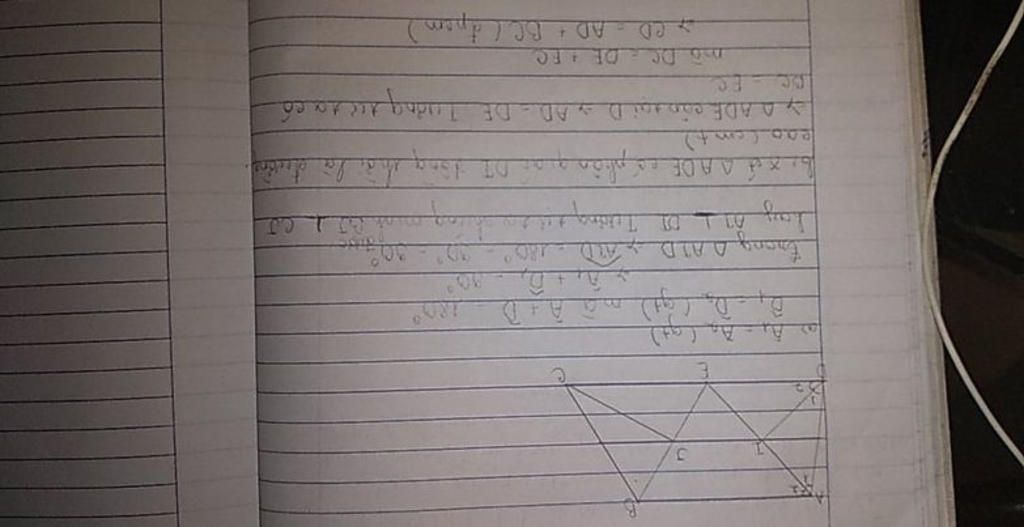 A B
1 2
I J
1 2
D E C
a) Â₁ = Â₂ (gt)
D̂₁ = D̂₂ (gt) mà Â + D̂ = 180°
=> Â₁ + D̂₁ = 90°
trong Δ AID => AID = 180° - 90° = 90°
hay AI ⊥ DI Tương tự ta chứng minh được BJ ⊥ CJ
b, xét Δ ADE có phân giác DI đồng thời là đường
cao (cmt)
=> Δ ADE cân tại D => AD = DE Tương tự ta có
BC = EC
mà DC = DE + EC
=> CD = AD + BC (đpcm)